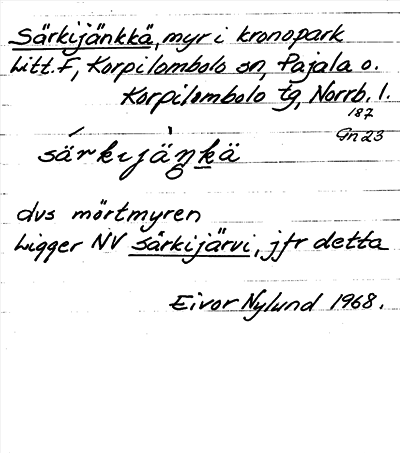 Särkijänkkä, myr i kronopark
Litt. F, Korpilombolo sn, Pajala o.
Korpilombolo tg, Norrb. l.
187
Gn 23
särkıjäŋkä
dvs mörtmyren
Ligger NV särkijärvi, jfr detta
Eivor Nylund 1968.